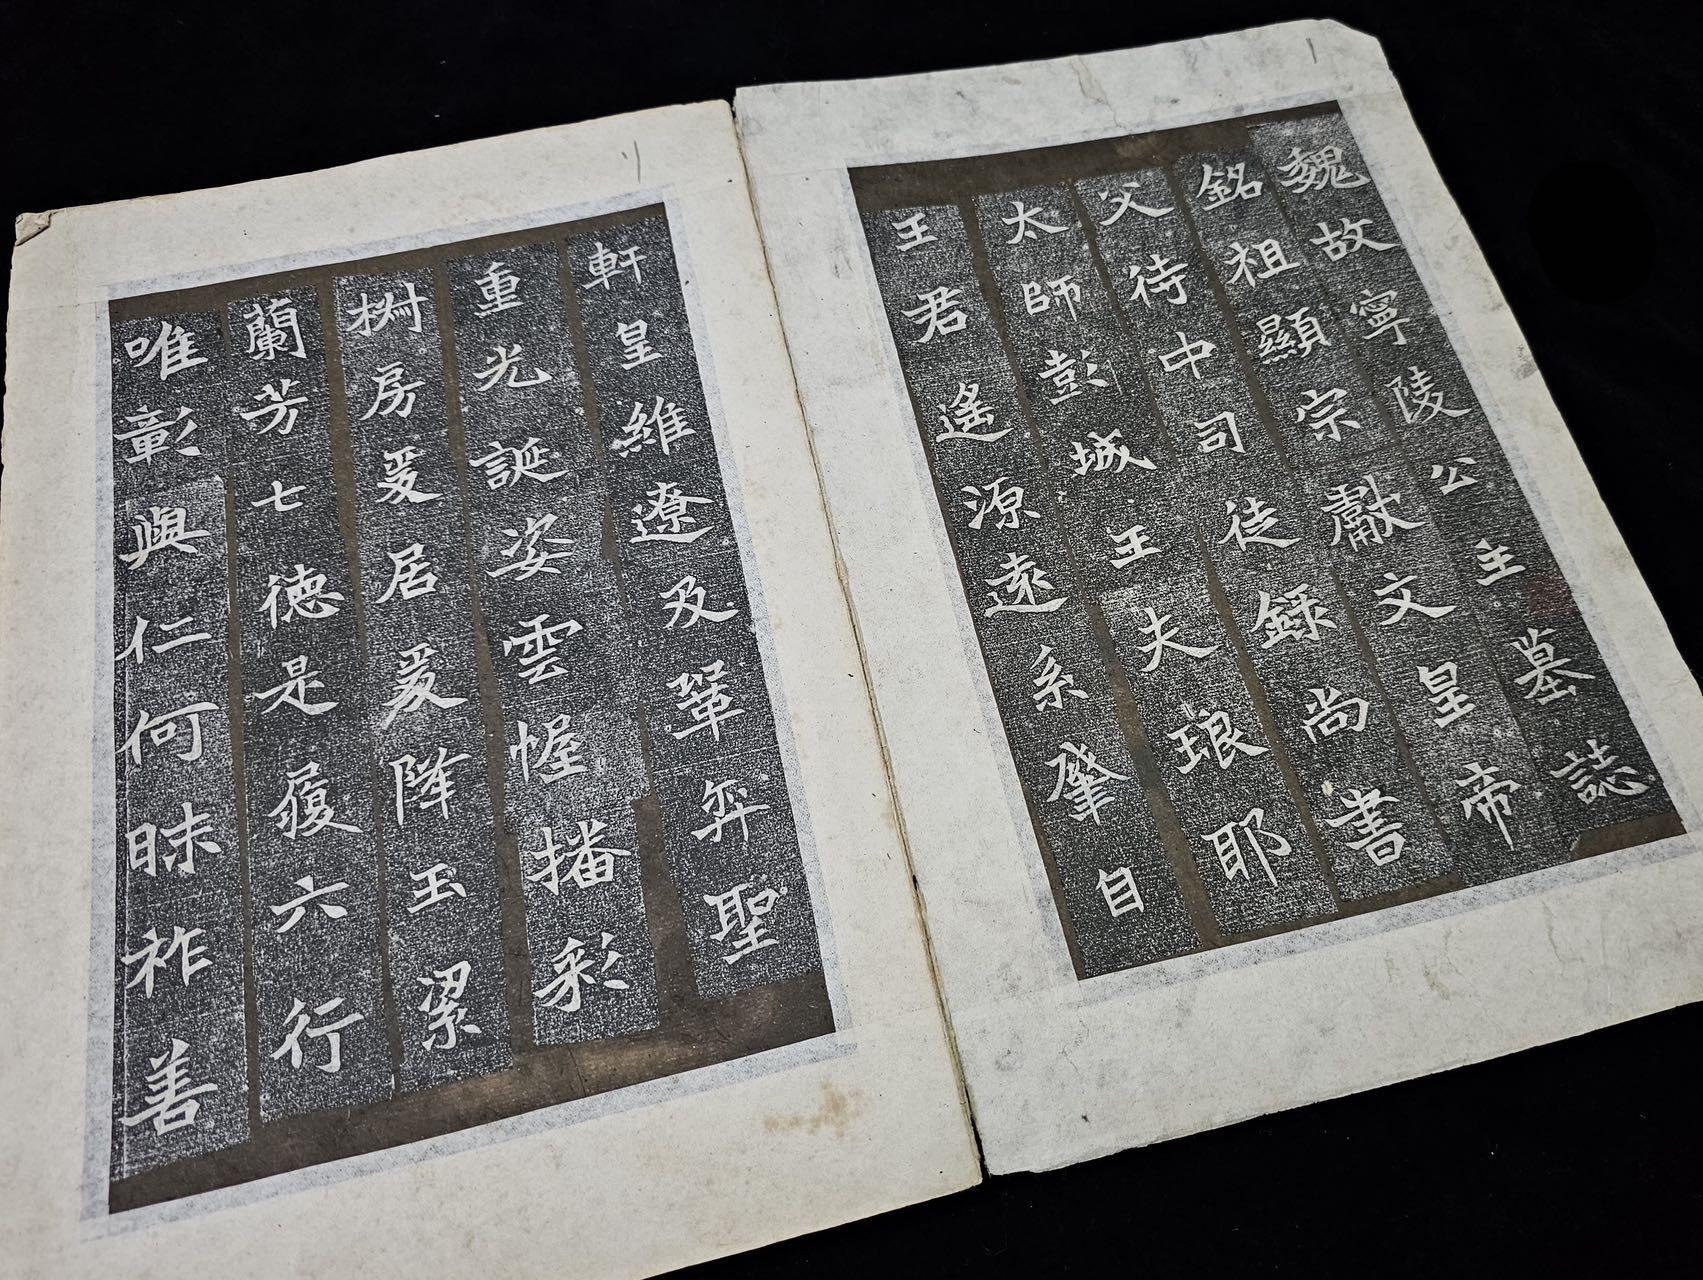 魏故寧陵公主墓誌
銘祖顯宗獻文皇帝
父侍中司徒錄尚書
太師彭城王夫琅耶
王君遙源遠系肇自
軒皇維遼及鞏弈聖
重光誕姿雲幄播彩
椒房爰居爰降玉絜
蘭芳七德是履六行
唯彰與仁何昧祚善